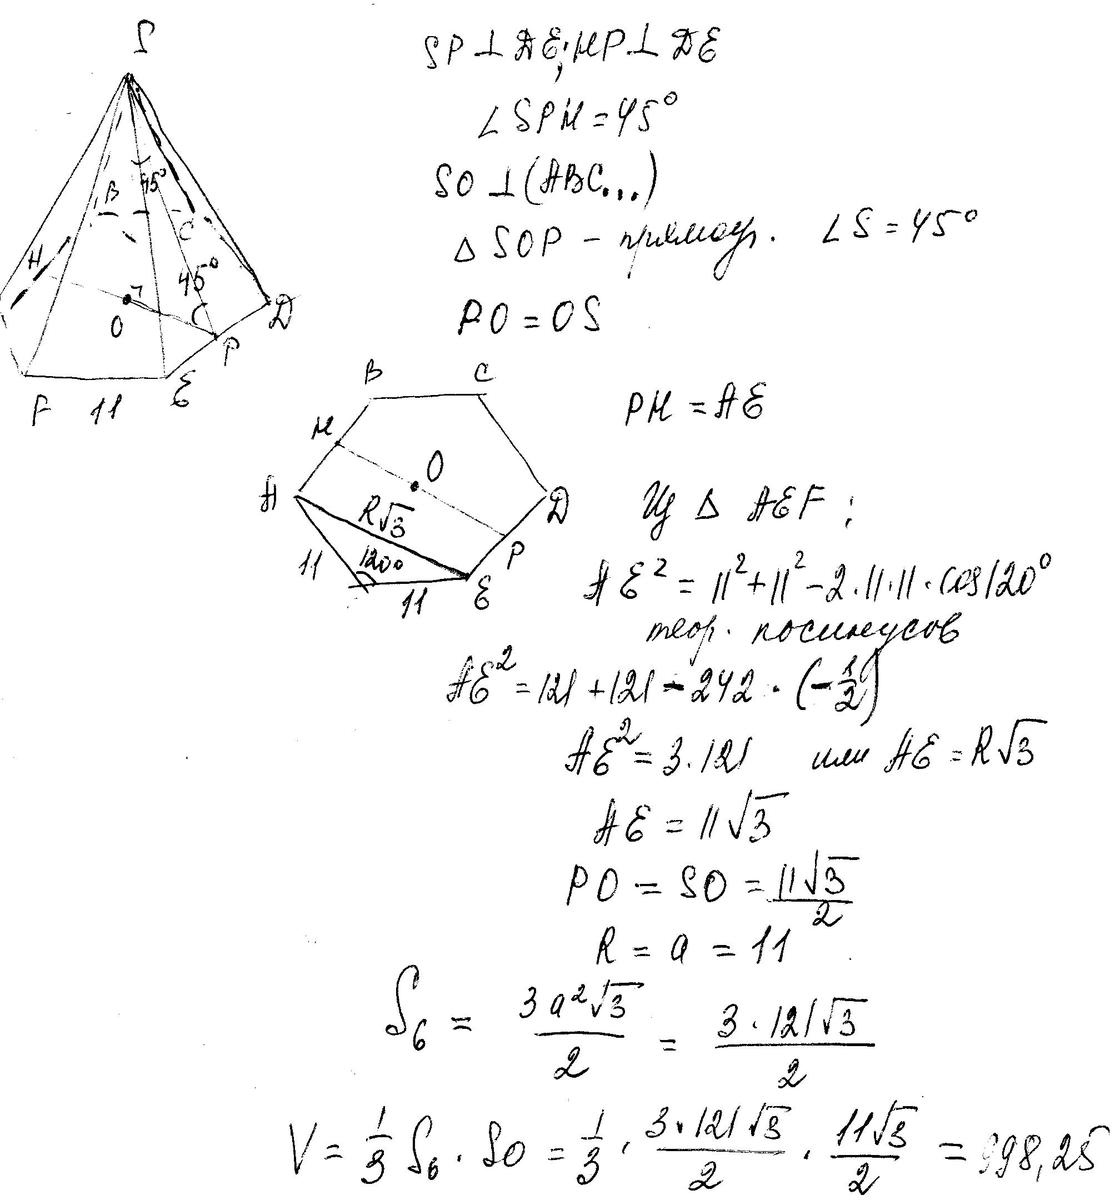 S
SP ⊥ DE; MP ⊥ DE
∠SPM = 45°
SO ⊥ (ABC...)
Δ SOP – прямоуг. ∠S = 45°
PO = OS
B 45° C
45°
O P D
F 11 E
B C
M O
A R√3 D
11 120° P
11 E
PM = AE
Из Δ AEF:
AE² = 11² + 11² – 2·11·11·cos120°
теор. косинусов
AE² = 121 + 121 – 242 · (–1/2)
AE² = 3·121 или AE = R√3
AE = 11√3
PO = SO = 11√3/2
R = a = 11
S₆ = 3a²√3/2 = 3·121√3/2
V = 1/3 S₆ · SO = 1/3 · 3·121√3/2 · 11√3/2 = 998,25